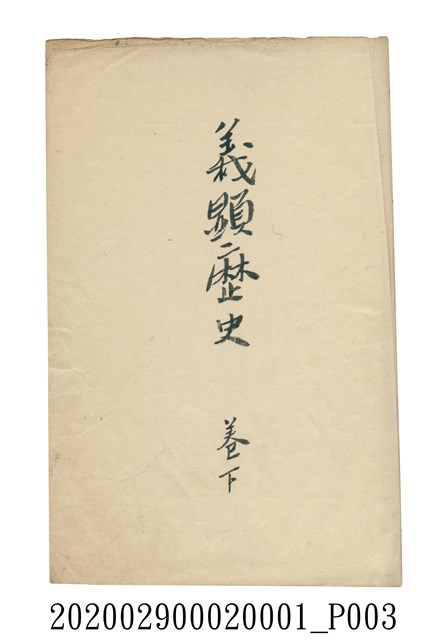 義顕歴史
巻下
202002900020001_P003